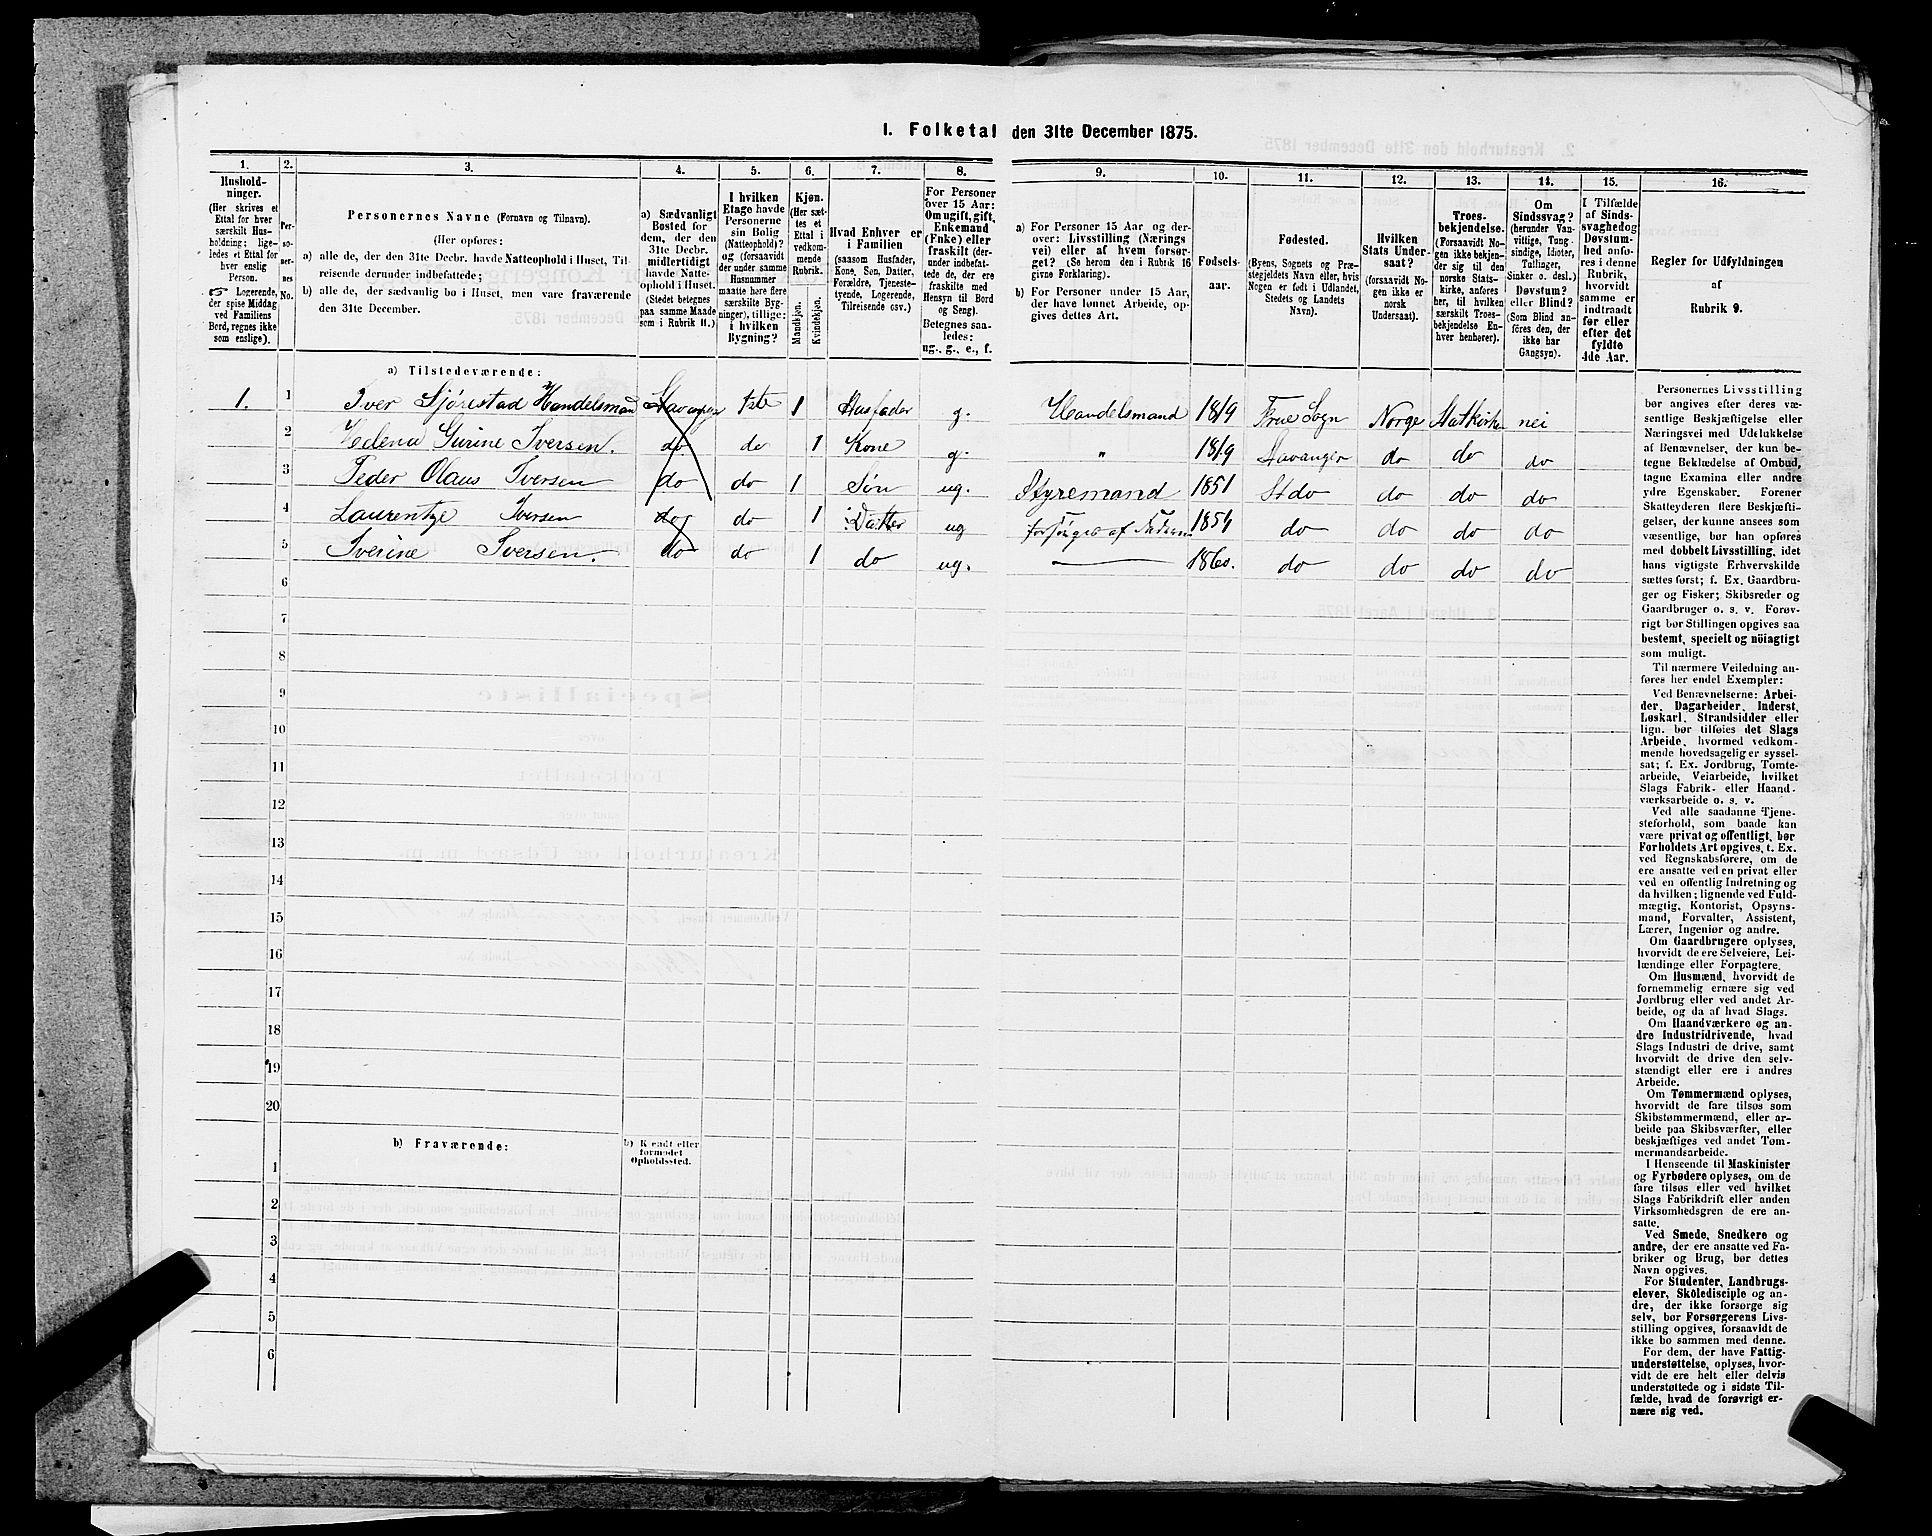 I. Folketal den 31te December 1875.
1.
Husholdninger.
(Her skrives et
Ettal for hver
særskilt Husholdning; ligeledes et Ettal for
hver enslig
Person.
☞ Logerende,
der spise Middag
ved Familiens
Bord, regnes ikke
som enslige).
2.
Personernes
No.
3.
Personernes Navne (Fornavn og Tilnavn).
(Her opføres:
a) alle de, der den 31te Decbr. havde Natteophold i Huset, Tilreisende derunder indbefattede;
b) alle de, der sædvanlig bo i Huset, men vare fraværende
den 31te December.
4.
a) Sædvanligt
Bosted for
dem, der den
31te Decbr.
midlertidigt
havde Natteophold i Huset.
(Stedet betegnes
paa samme Maade
som i Rubrik 11.)
5.
I hvilken
Etage havde
Personerne
sin Bolig
(Natteophold)?
og (forsaavidt
der under samme
Husnummer
maatte høre flere
særskilte Bygninger), tillige:
i hvilken
Bygning?
6.
Kjøn.
(Her sættes et
Ettal i
vedkommende
Rubrik.
Mandkjøn.
Kvindekjøn.
7.
Hvad Enhver er
i Familien
(saasom Husfader,
Kone, Søn, Datter,
Forældre, Tjenestetyende, Logerende,
Tilreisende osv.)
8.
For Personer
over 15 Aar:
Om ugift, gift,
Enkemand
(Enke) eller
fraskilt (derunder indbefattede de, der ere
fraskilte med
Hensyn til Bord
og Seng).
Betegnes saaledes:
ug., g., e., f.
9.
a) For Personer 15 Aar og derover: Livsstilling (Næringsvei) eller af hvem forsørget? (Se herom den i Rubrik 16
givne Forklaring).
b) For Personer under 15 Aar,
der have lønnet Arbeide, opgives dettes Art.
10.
Fødselsaar.
11.
Fødested.
(Byens, Sognets og Præstegjeldets Navn eller, hvis
Nogen er født i Udlandet,
Stedets og Landets
Navn).
12.
Hvilken
Stats Undersaat?
(forsaavidt Nogen ikke er
norsk
Undersaat).
13.
Troesbekjendelse.
(Forsaavidt Nogen ikke bekjender sig til den
norske Statskirke, anføres
her, til hvilken
særskilt Troesbekjendelse Enhver henhører).
14.
Om
Sindssvag?
(herunder Vanvittige, Tungsindige, Idioter,
Tullinger,
Sinker o. desl.)
Døvstum?
eller Blind?
(Som Blind anføres den, der
ikke har
Gangsyn).
15.
I Tilfælde
af Sindssvaghed og
Døvstumhed anføres i denne
Rubrik,
hvorvidt
samme er
indtraadt
før eller
efter det
fyldte
4de Aar.
16.
Regler for Udfyldningen
af
Rubrik 9.
a) Tilstedeværende:
1. 1 Iver Sjørestad Handelsmand Stavanger 1ste 1 Husfader g. Handelsmand 1819 Frue Sogn Norge Statkirke nei
2 Helena Gurine Iversen. do do 1 Kone g. " 1819 Stavanger do do do
3 Peder Olaus Iversen do do 1 Søn ug. Styremand 1851 St do do do do
4 Laurentze Iversen do do 1 Datter ug forsørges af Faderen 1854 do do do do
5 Iverine Iversen. do do 1 do ug. 1860. do do do do
6
7
8
9
10
11
12
13
14
15
16
17
18
19
20
b) Fraværende:
b) Kjendt eller
formodet
Opholdssted.
1
2
3
4
5
6
Personernes Livsstilling
bør angives efter deres væsentlige Beskjæftigelse eller
Næringsvei med Udelukkelse
af Benævnelser, der kun betegne Beklædelse af Ombud,
tagne Examina eller andre
ydre Egenskaber. Forener
Skatteyderen flere Beskjæftigelser, der kunne ansees som
væsentlige, bør han opføres
med dobbelt Livsstilling, idet
hans vigtigste Erhvervskilde
sættes først; f. Ex. Gaardbruger og Fisker; Skibsreder og
Gaardbruger o. s. v. Forøvrigt bør Stillingen opgives saa
bestemt, specielt og nöiagtigt
som muligt.
Til nærmere Veiledning anføres her endel Exempler:
Ved Benævnelserne: Arbeider, Dagarbeider, Inderst,
Løskarl, Strandsidder eller
lign. bør tilføies det Slags
Arbeide, hvormed vedkommende hovedsagelig er sysselsat; f. Ex. Jordbrug, Tomtearbeide, Veiarbeide, hvilket
Slags Fabrik- eller Haandværksarbeide o. s. v.
Ved alle saadanne Tjenesteforhold, som baade kan
være privat og offentligt, bør
Forholdets Art opgives, t. Ex.
ved Regnskabsførere, om de
ere ansatte ved en privat eller
ved en offentlig Indretning og
da hvilken; lignende ved Fuldmægtig, Kontorist, Opsynsmand, Forvalter, Assistent,
Lærer, Ingeniør og andre.
Om Gaardbrugere oplyses,
hvorvidt de ere Selveiere, Leilændinge eller Forpagtere.
Om Husmænd, hvorvidt de
fornemmelig ernære sig ved
Jordbrug eller ved andet Arbeide, og da af hvad Slags.
Om Haandværkere og andre Industridrivende, hvad
Slags Industri de drive, samt
hvorvidt de drive den selvstændigt eller ere i andres
Arbeide.
Om Tømmermænd oplyses,
hvorvidt de fare tilsøs som
Skibstømmermænd, eller arbeide paa Skibsværfter, eller
beskjæftiges ved andet Tømmermandsarbeide.
I Henseende til Maskinister
og Fyrbødere oplyses, om de
fare tilsøs eller ved hvilket
Slags Fabrikdrift eller anden
Virksomhedsgren de ere ansatte.
Ved Smede, Snedkere og
andre, der ere ansatte ved Fabriker og Brug, bør dettes
Navn opgives.
For Studenter, Landbrugselever, Skôledisciple og andre, der ikke forsørge sig
selv, bør Forsørgerens Livsstilling opgives, forsaavidt de
ikke bo sammen med denne.
For dem, der have Fattigunderstøttelse, oplyses, hvorvidt de ere helt eller delvis
understøttede og i sidste Tilfælde, hvad de forøvrigt ernære sig ved.